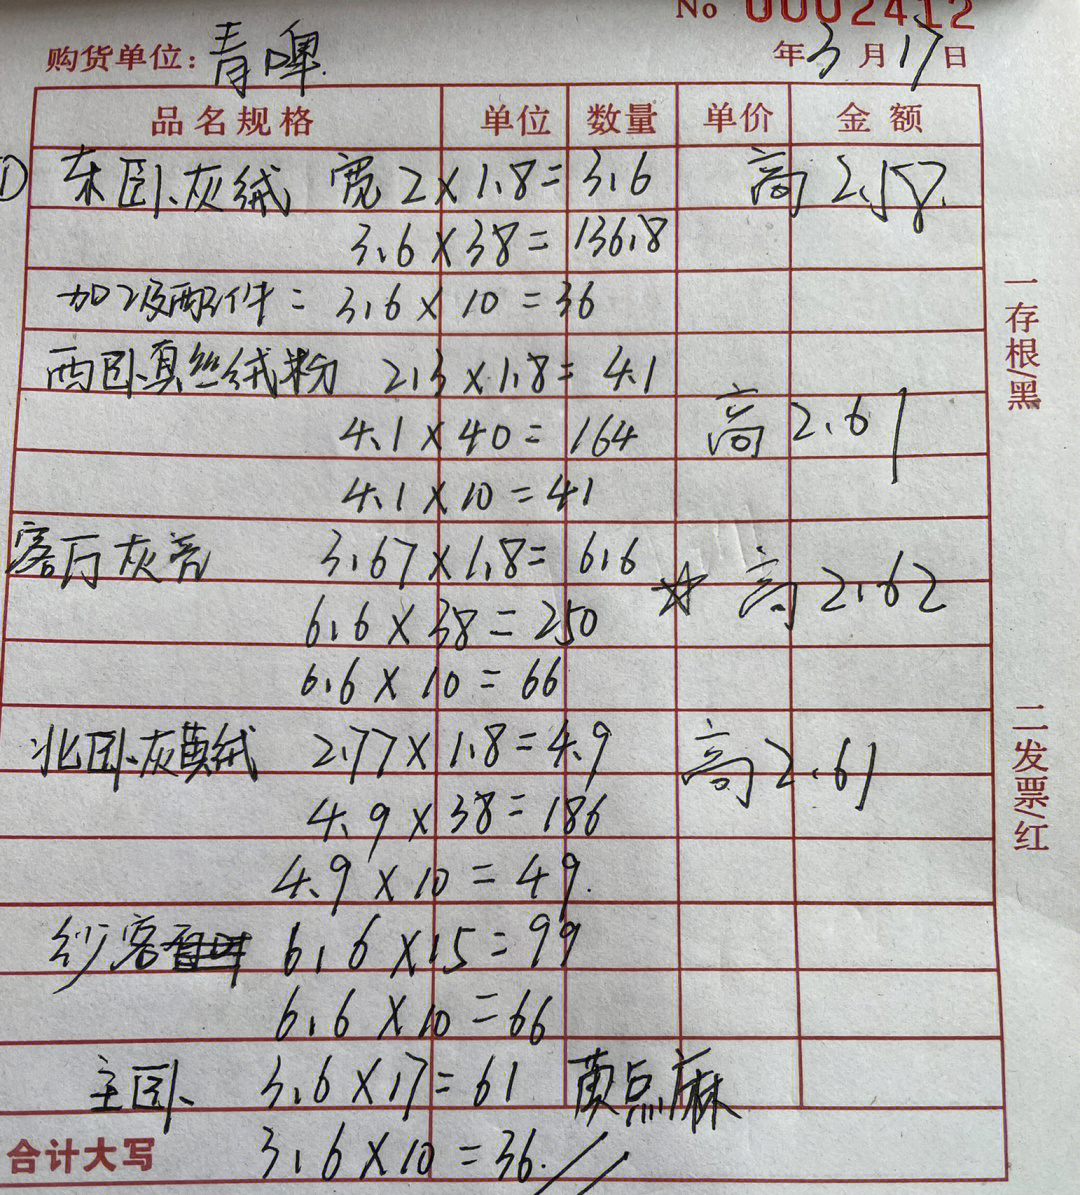 No 0002412
购货单位：青啤
年3月17日
品名规格 单位 数量 单价 金额
① 东卧灰绒 宽2×1.8=3.6 高2.58
3.6×38=136.8
加工及配件=3.6×10=36
西卧真丝绒粉 2.3×1.8=4.1
4.1×40=164 高2.61
4.1×10=41
客厅灰亮 3.67×1.8=6.6 ☆高2.62
6.6×38=250
6.6×10=66
北卧灰黄绒 2.77×1.8=4.9 高2.61
4.9×38=186
4.9×10=49.
纱客 6.6×15=99
6.6×10=66
主卧 3.6×17=61 黄点麻
合计大写 3.6×10=36.
一存根/黑
二发票/红